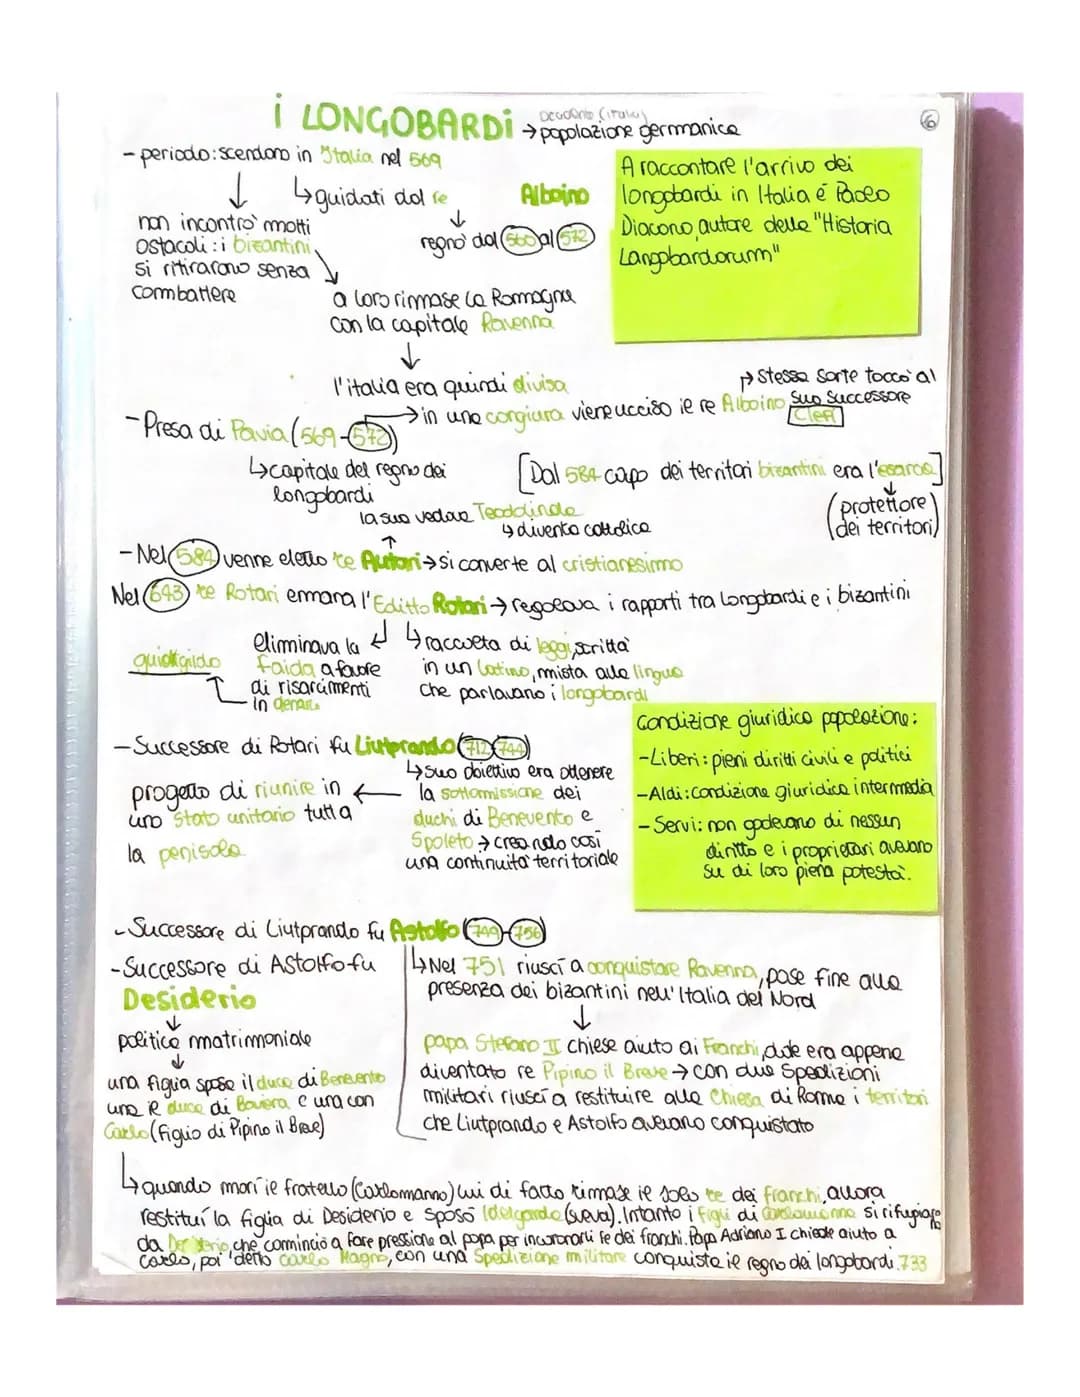 i LONGOBARDI → popolazione germanica
6
- periodo: scendono in Italia nel 569
↳ guidati dal re Alboino
regnò dal 560 al 572
non incontrò molti
ostacoli: i bizantini
si ritirarono senza
combattere
a loro rimase la Romagna
con la capitale Ravenna
l'italia era quindi divisa
A raccontare l'arrivo dei
longobardi in Italia é Paolo
Diacono, autore della "Historia
Langobardorum"
- Presa di Pavia (569-572)
→ in una congiura viene ucciso il re Alboino
→ stessa sorte toccò al
suo successore
Clefi
↳ capitale del regno dei
longobardi
[Dal 584 capo dei territori bizantini era l'esarca]
(protettore
dei territori)
la sua vedova Teodolinda
↳ diventa cattolica
- Nel 584 venne eletto re Autari → si converte al cristianesimo
Nel 643 re Rotari emana l'Editto Rotari → regolava i rapporti tra Longobardi e i bizantini
eliminava la
faida a favore
di risarcimenti
in denaro
guidrigildo
↳ raccolta di leggi, scritta
in un latino, mista alla lingua
che parlavano i longobardi
- Successore di Rotari fu Liutprando (712-744)
↳ suo obiettivo era ottenere
la sottomissione dei
duchi di Benevento e
Spoleto → creando così
una continuità territoriale
progetto di riunire in
uno stato unitario tutta
la penisola
Condizione giuridica popolazione:
- Liberi: pieni diritti civili e politici
- Aldi: condizione giuridica intermedia
- Servi: non godevano di nessun
diritto e i proprietari avevano
su di loro piena potestà.
- Successore di Liutprando fu Astolfo (749-756)
↳ Nel 751 riuscì a conquistare Ravenna, pose fine alla
presenza dei bizantini nell'Italia del Nord
papa Stefano II chiese aiuto ai Franchi, dove era appena
diventato re Pipino il Breve → con due spedizioni
militari riuscì a restituire alla Chiesa di Roma i territori
che Liutprando e Astolfo avevano conquistato
- Successore di Astolfo fu
Desiderio
politica matrimoniale
una figlia sposa il duca di Benevento
una il duca di Baviera e una con
Carlo (figlio di Pipino il Breve)
↳ quando morì il fratello (Carlomanno) lui di fatto rimase il solo re dei franchi, allora
restituì la figlia di Desiderio e sposò Ildelgarda (sveva). Intanto i figli di Carlomanno si rifugiano
da Desiderio, che cominciò a fare pressione al papa per incoronarli re dei franchi. Papa Adriano I chiede aiuto a
Carlo, poi detto Carlo Magno, con una spedizione militare conquista il regno dei longobardi. 733